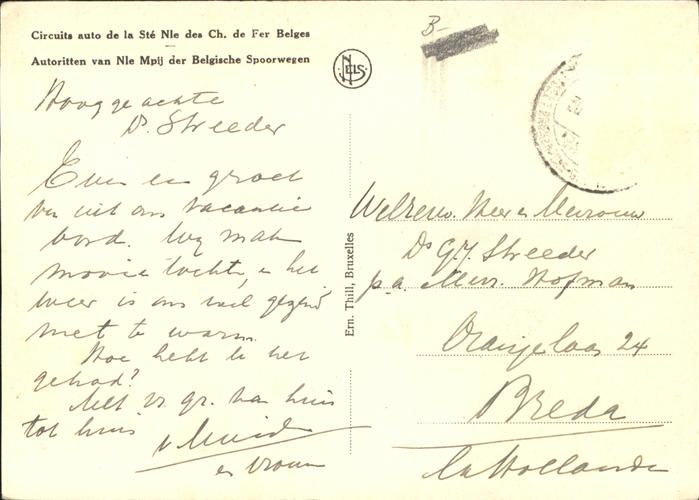 Circuits auto de la Sté Nle des Ch. de Fer Belges
Autoritten van Nle Mpij der Belgische Spoorwegen
NELS
B-
Hooggeachte
Ds Streeder
Even een groet
van uit ons vacantie
oord. Wij maken
mooie tochten, en het
weer is ons wel gezind
niet te warm.
Hoe hebt U het
gehad?
Met vr. gr. van huis
tot huis
v Muiden
en vrouw
Ern. Thill, Bruxelles
Weleerw. Heer en Mevrouw
Ds G.J. Streeder
p.a. Mevr. Hofman
Oranjelaan 24
Breda
Hollande